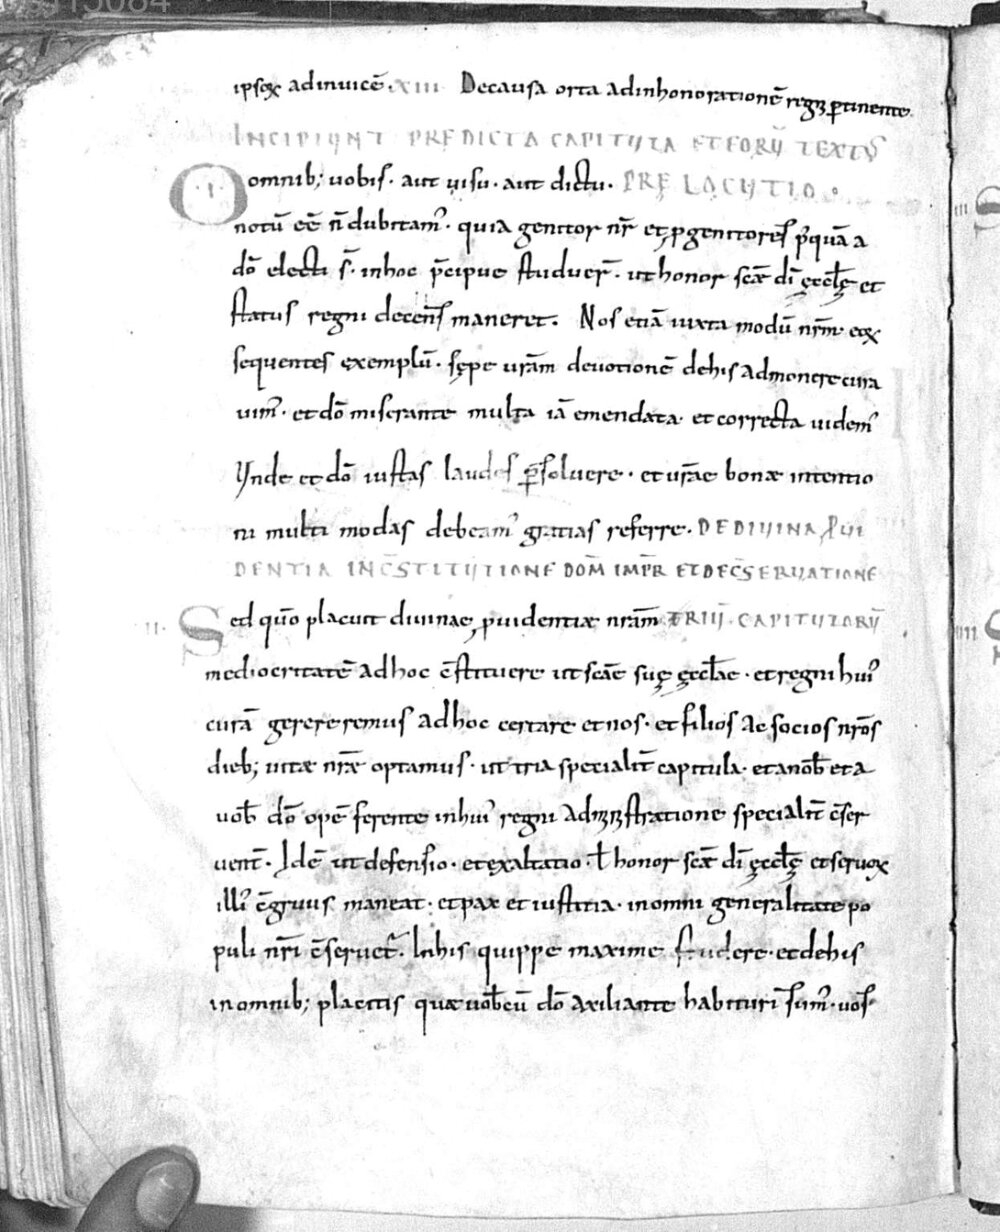 ipsoꝝ adinuicē. xiii Decausa orta adinhonorationē regꝫ ꝑtinente
INCIPIUNT PREDICTA CAPITULA ET EORŪ TEXTUS
.I. Omnib; uobis. aut uisu. aut dictu. PRELOCUTIO.
notū eē n̄ dubitam᾽. quia genitor nr̄ et ꝓgenitores p̄quā a
dō electi s̄. inhoc p̄cipue studuer̄. ut honor scǣ dī ęccłę et
status regni decens maneret. Nos etiā iuxta modū nrm̄ eoꝝ
sequentes exemplū. sępe urām deuotionē dehis admonere cura
uim᾽. et dō miserante multa iā emendata. et correcta uidem᾽
Unde et dō iustas laudes ꝑsoluere. et urāe bonæ intentio
ni multi modas debeam᾽ gratias referre. DE DIUINA ꝒUI
DENTIA IN C̄STITUTIONE DOM̄ IMPR̄ ET DE C̄SERUATIONE
II. Sed quō placuit diuinae ꝓuidentiæ nrām TRIU. CAPITULORŪ
mediocritatē adhoc c̄stituere ut scāe suę ęccłae. et regni hui᾽
curā gereremus adhoc certare et nos. et filios ac socios nrōs
dieb; uitæ nrǣ optamus. ut tria specialit̄ capitula. et anob̄ et a
uob̄ dō opē ferente inhui᾽ regni administratione specialit̄ c̄ser
uent̄. Idē ut defensio. et exaltatio. ł honor scǣ dī ęccłę et seruoꝝ
illi᾽ c̄gruus maneat. et pax et iustitia. in omni generalitate po
puli nrī c̄seruet᾽. Inhis quippe maxime studere. et dehis
in omnib; placitis quæ uob̄cū dō axiliante habituri sum᾽. uos
III
IIII